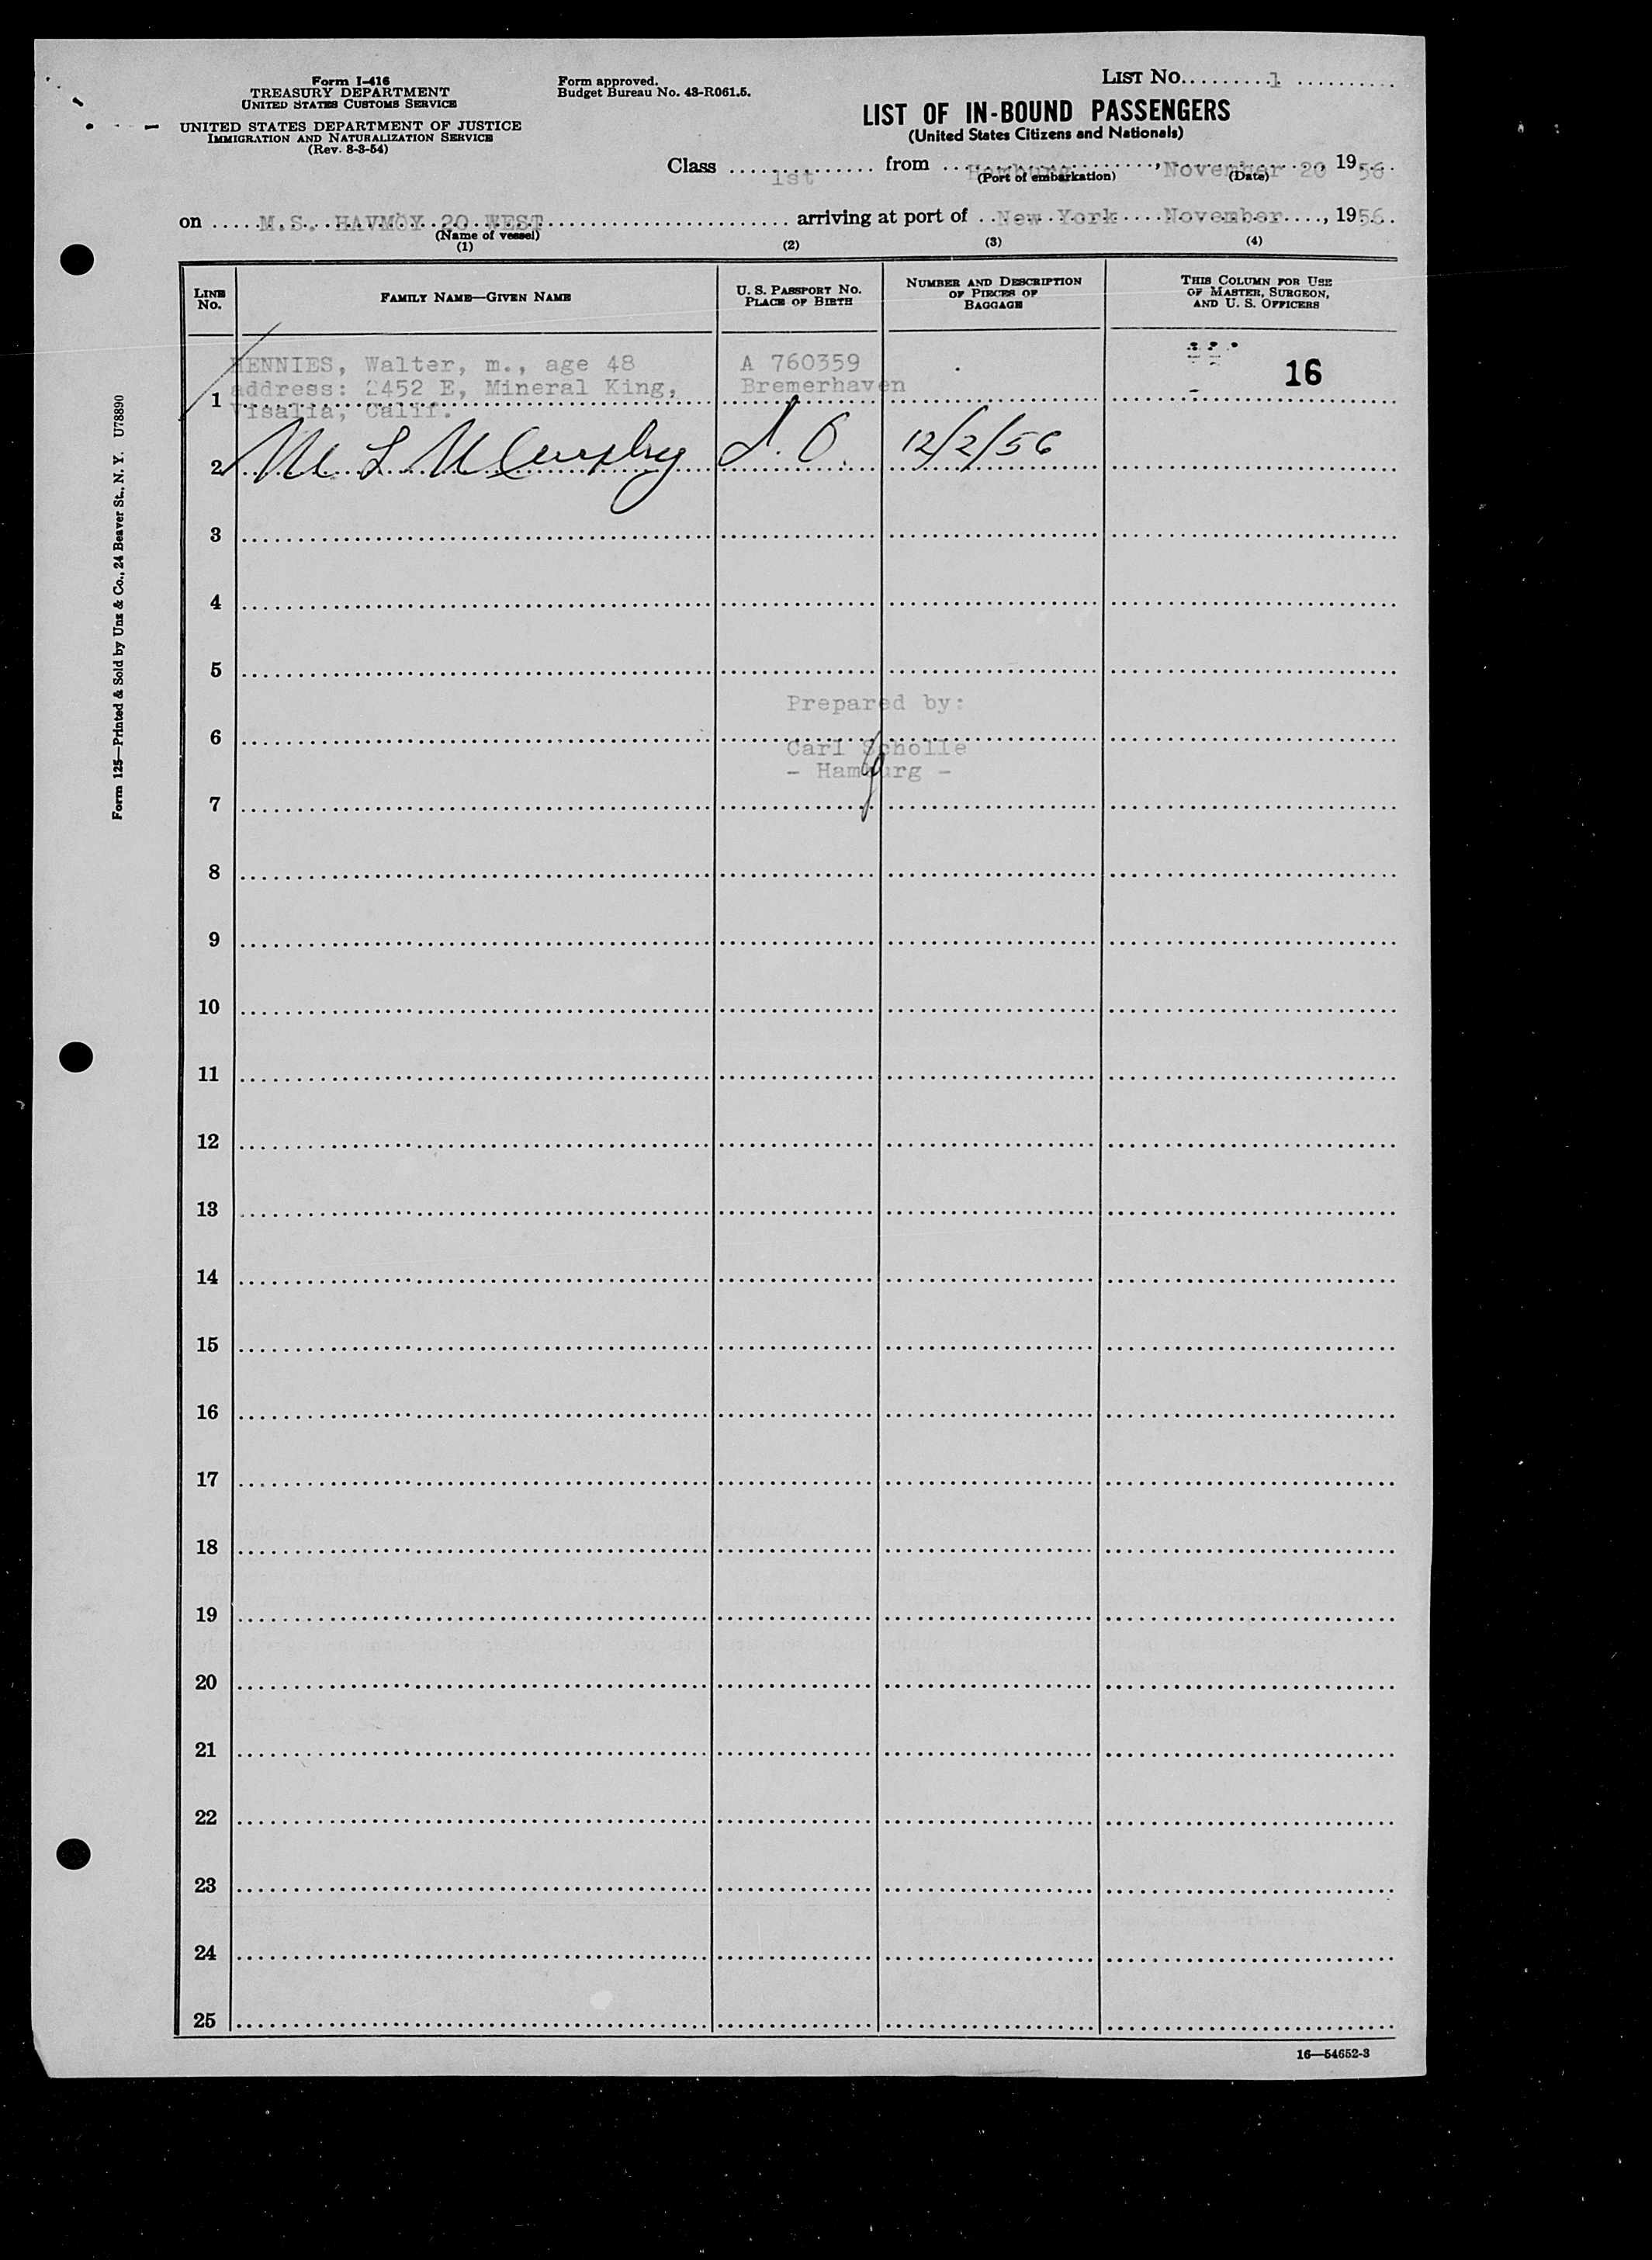 Form I-416
TREASURY DEPARTMENT
UNITED STATES CUSTOMS SERVICE
UNITED STATES DEPARTMENT OF JUSTICE
IMMIGRATION AND NATURALIZATION SERVICE
(Rev. 8-3-54)
Form approved.
Budget Bureau No. 43-R061.5.
LIST No. 1
LIST OF IN-BOUND PASSENGERS
(United States Citizens and Nationals)
Class 1st from Hamburg, November 20, 1956
(Port of embarkation) (Date)
on M.S. HAVMÖY 20 WEST arriving at port of New York November, 1956.
(Name of vessel)
(1) (2) (3) (4)
LINE No.
FAMILY NAME—GIVEN NAME
U. S. PASSPORT NO.
PLACE OF BIRTH
NUMBER AND DESCRIPTION
OF PIECES OF
BAGGAGE
THIS COLUMN FOR USE
OF MASTER, SURGEON,
AND U. S. OFFICERS
HENNIES, Walter, m., age 48 A 760359 16
1 address: 2452 E, Mineral King, Bremerhaven
Visalia, Calif.
2 12/2/56
3
4
5
Prepared by:
6
Carl Scholle
- Hamburg -
7
8
9
10
11
12
13
14
15
16
17
18
19
20
21
22
23
24
25
16—54652-3
Form 125—Printed & Sold by Unz & Co., 24 Beaver St., N. Y. U78890